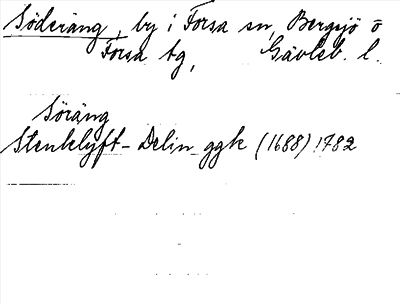 Söderäng, by i Forsa sn, Bergsjö o
Forsa tg, Gävleb. l.
Söräng
Stenklyft-Delin ggk (1688) 1782